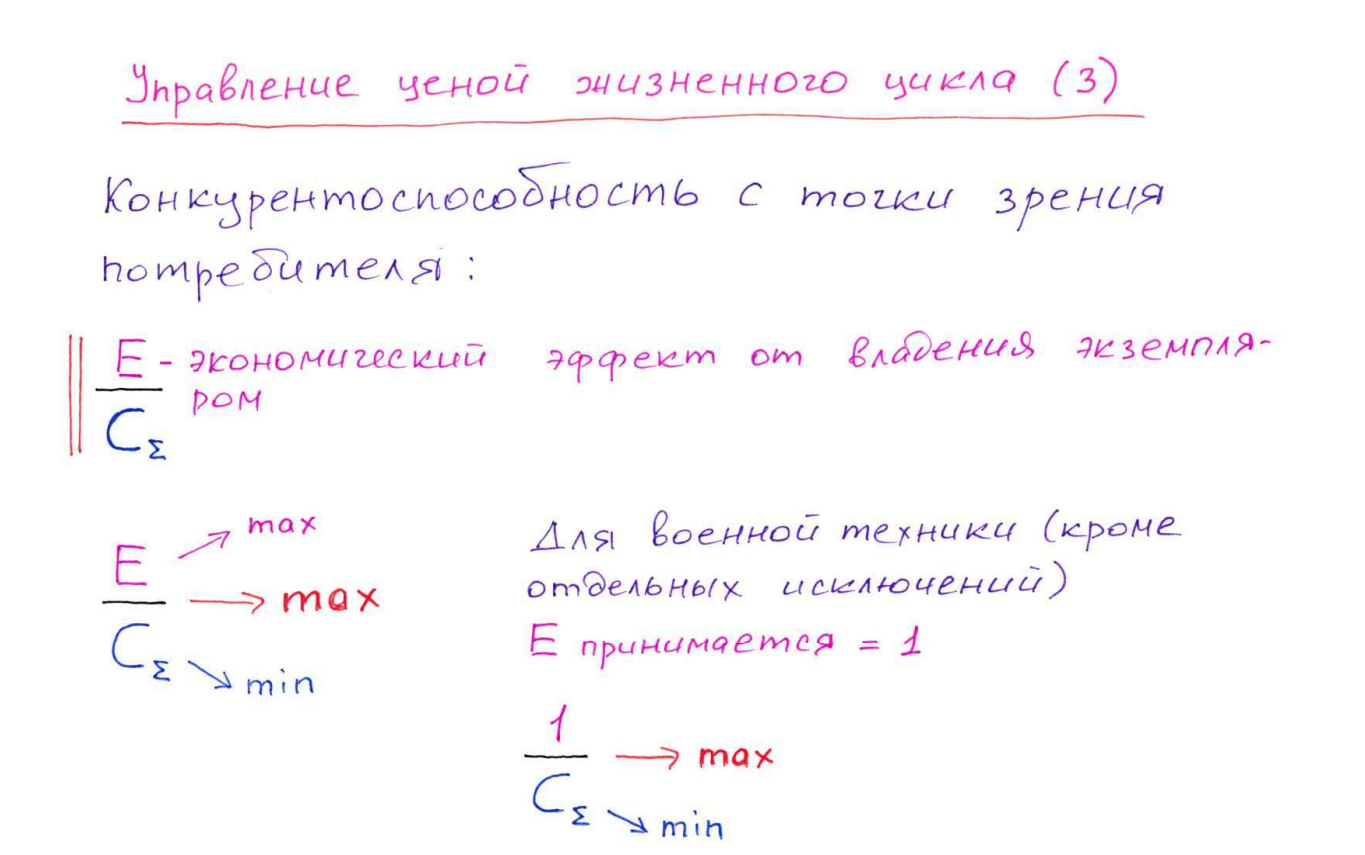 Управление ценой жизненного цикла (3)
Конкурентоспособность с точки зрения
потребителя:
E - экономический эффект от владения экземпля-
ром
C_Σ
E ↗ max
→ max
C_Σ ↘ min
Для военной техники (кроме
отдельных исключений)
E принимается = 1
1
→ max
C_Σ ↘ min